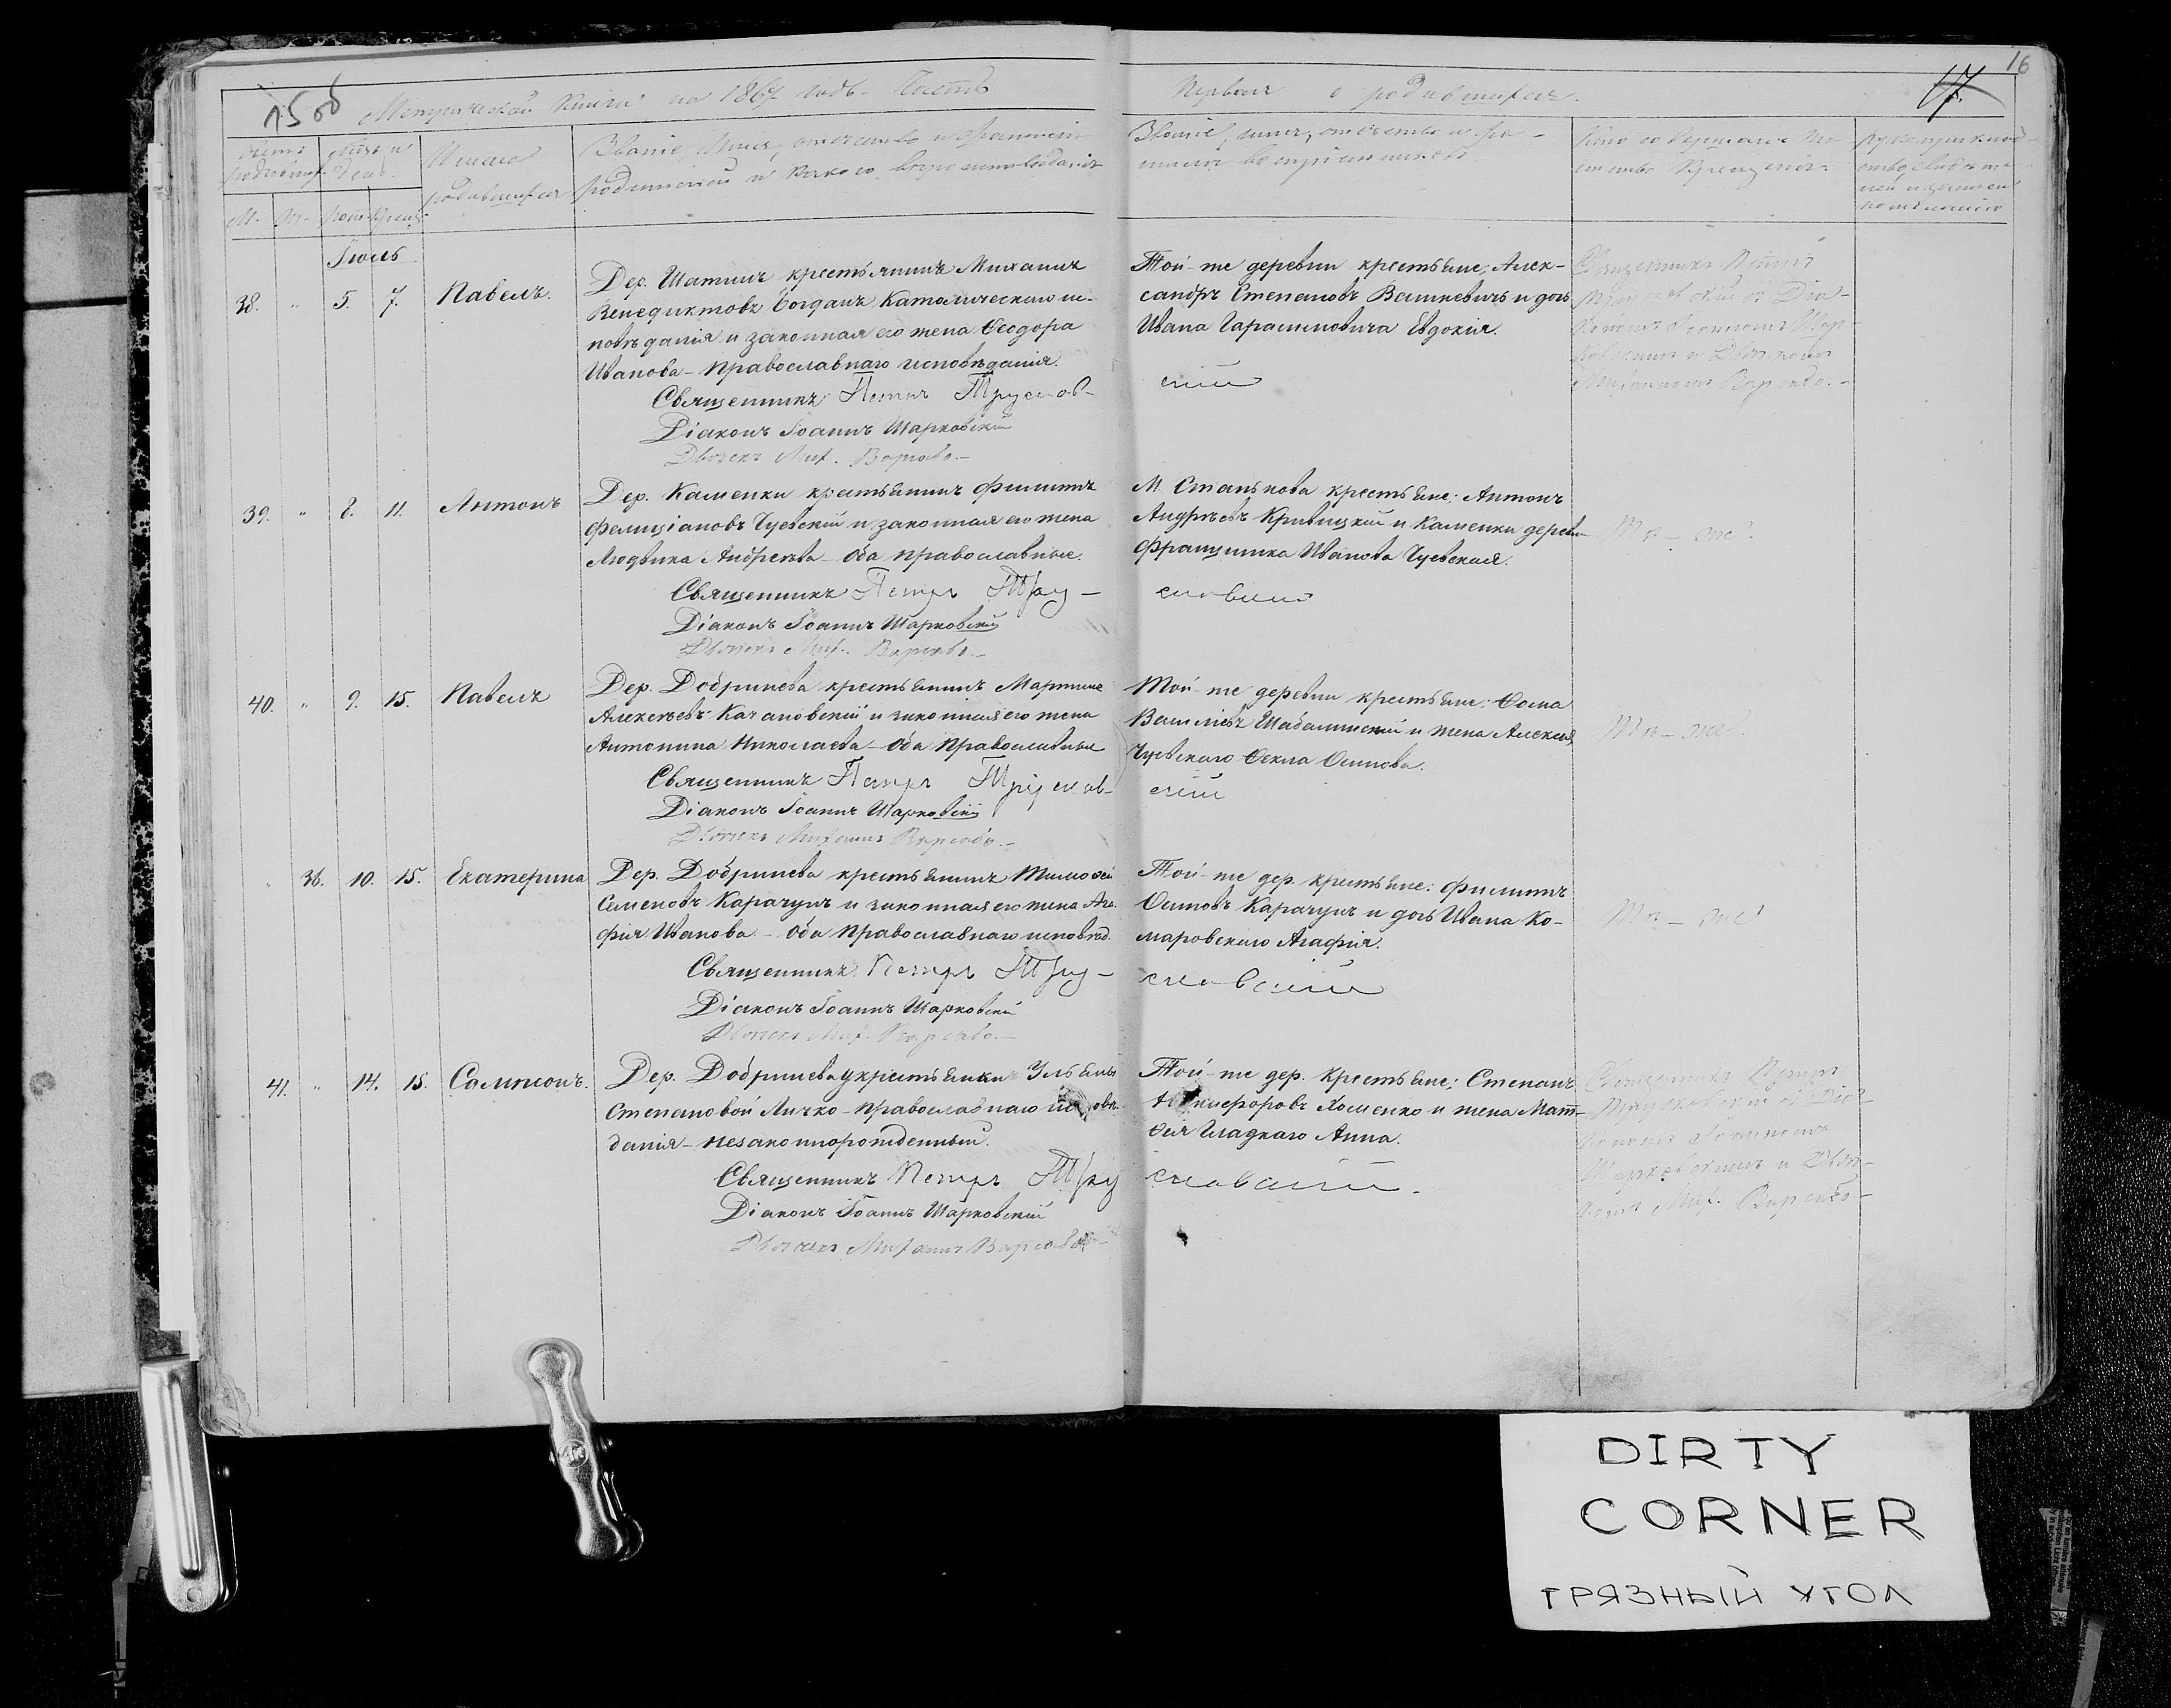 16
15об 17
Метрической Книги на 1867 годъ. Часть Первая о родившихся.
Счетъ родивших.
Мѣсяцъ и День.
Имена родившихся
Званіе, Имя, отчество и фамилія
родителей и какого вѣроисповѣданія
Званіе, имя, отчество и фа-
милія воспріемниковъ
Кто совершалъ Та-
инство Крещенія.
Рукоприклад-
ство свидѣте-
лей
М. Ж. Рожд. Крещ.
Іюль
38. " 5. 7. Павелъ.
Дер. Шатилъ крестьянинъ Михаилъ
Венедиктовъ Богданъ Католическаго ис-
повѣданія и законная его жена Ѳеодора
Иванова – Православнаго исповѣданія.
Священникъ Петръ Трусков-
скій
Діаконъ Іоаннъ Шарковскій
Дьячекъ Мих. Варсаво.–
Той-же деревни крестьяне, Алек-
сандръ Степановъ Вашкевичъ и дочь
Ивана Гарасимовича Евдокія.
Священникъ Петръ
Трусковскій съ Діа-
кономъ Іоанномъ Шар-
ковскимъ и Дьячкомъ
Михаиломъ Варсаво.–
39. " 8. 11. Антонъ
Дер. Каменки крестьянинъ Филиппъ
Фелиціановъ Чуевскій и законная его жена
Людвика Андреева – Оба православные.
Священникъ Петръ Тру-
сковскій
Діаконъ Іоаннъ Шарковскій
Дьячекъ Мих. Варсаво.–
М. Станькова крестьяне: Антонъ
Андреевъ Кривицкій и Каменки деревни
Францишка Иванова Чуевская.
Тѣ-же
40. " 9. 15. Павелъ
Дер. Добринева крестьянинъ Мартинъ
Алексѣевъ Качановскій и законная его жена
Антонина Николаева – Оба Православные
Священникъ Петръ Трусков-
скій
Діаконъ Іоаннъ Шарковскій
Дьячекъ Михаилъ Варсаво.–
Той-же деревни крестьяне: Ѳома
Василіевъ Шабалинскій и жена Алексѣя
Чуевскаго Ѳекла Осипова.
Тѣ-же
" 36. 10. 15. Екатерина
Дер. Добринева крестьянинъ Тимоѳей
Семеновъ Карачунъ и законная его жена Ага-
фія Иванова – Оба Православнаго исповѣд.
Священникъ Петръ Тру-
сковскій
Діаконъ Іоаннъ Шарковскій
Дьячекъ Мих. Варсаво.–
Той-же дер. крестьяне: Филиппъ
Осиповъ Карачунъ и дочь Ивана Ко-
маровскаго Агафія.
Тѣ-же
41. " 14. 15. Сампсонъ.
Дер. Добринева у крестьянки Ульяны
Степановой Личко – православнаго исповѣ-
данія – незаконнорожденный.
Священникъ Петръ Тру
сковскій.
Діаконъ Іоаннъ Шарковскій
Дьячекъ Михаилъ Варсаво–
Той-же дер. Крестьяне: Степанъ
Никифоровъ Хоменко и жена Мат-
ѳея Гладкаго Анна.
Священникъ Петръ
Трусковскій съ Діа-
кономъ Іоанномъ
Шарковскимъ и Дьяч-
комъ Мих. Варсаво–
DIRTY
CORNER
ГРЯЗНЫЙ УГОЛ